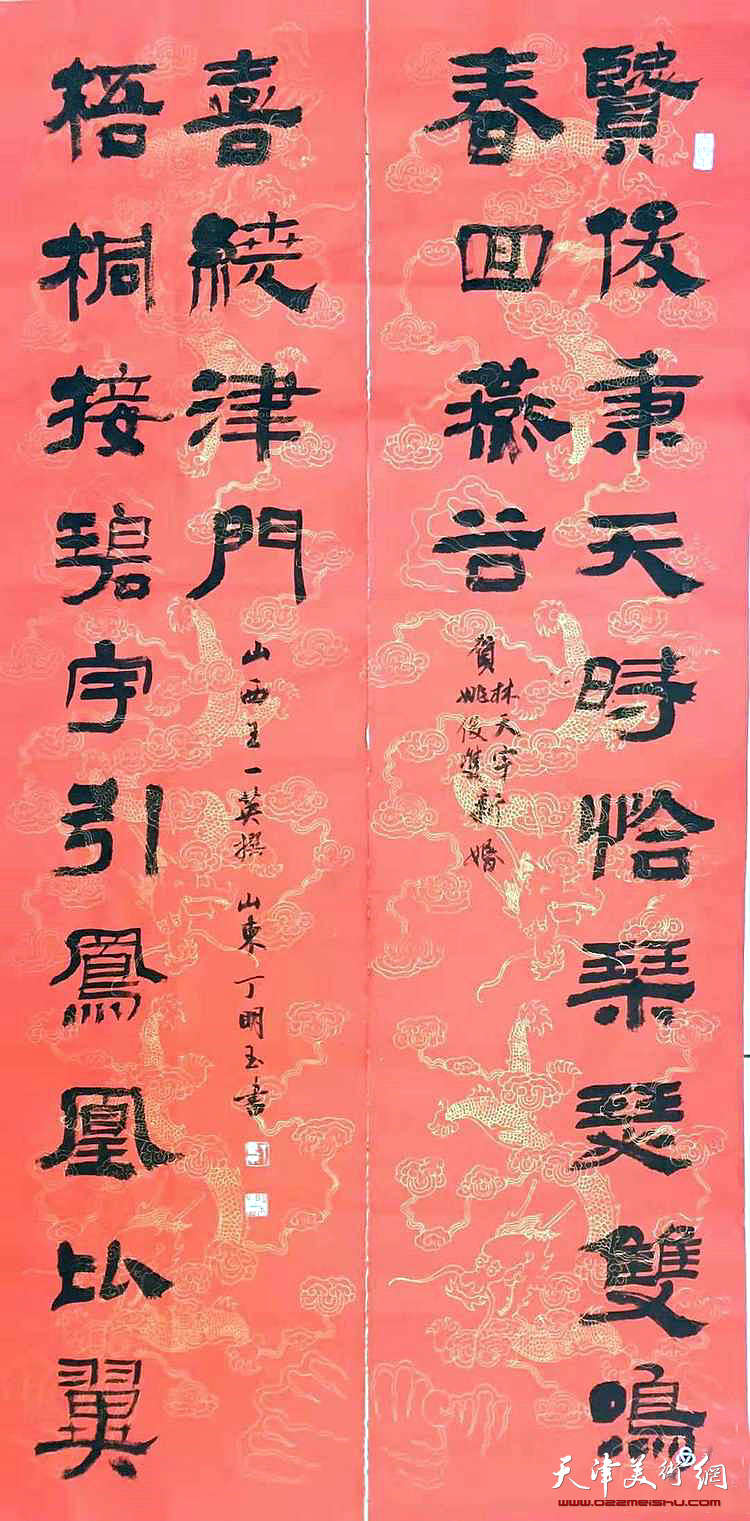 賢俊秉天時恰琴瑟雙鳴
春回燕谷
賀林天宇
姚俊雙新婚
梧桐接碧宇引鳳凰比翼
喜繞津門
山西王一英撰 山東丁明玉書
天津美術網
www.022meishu.com